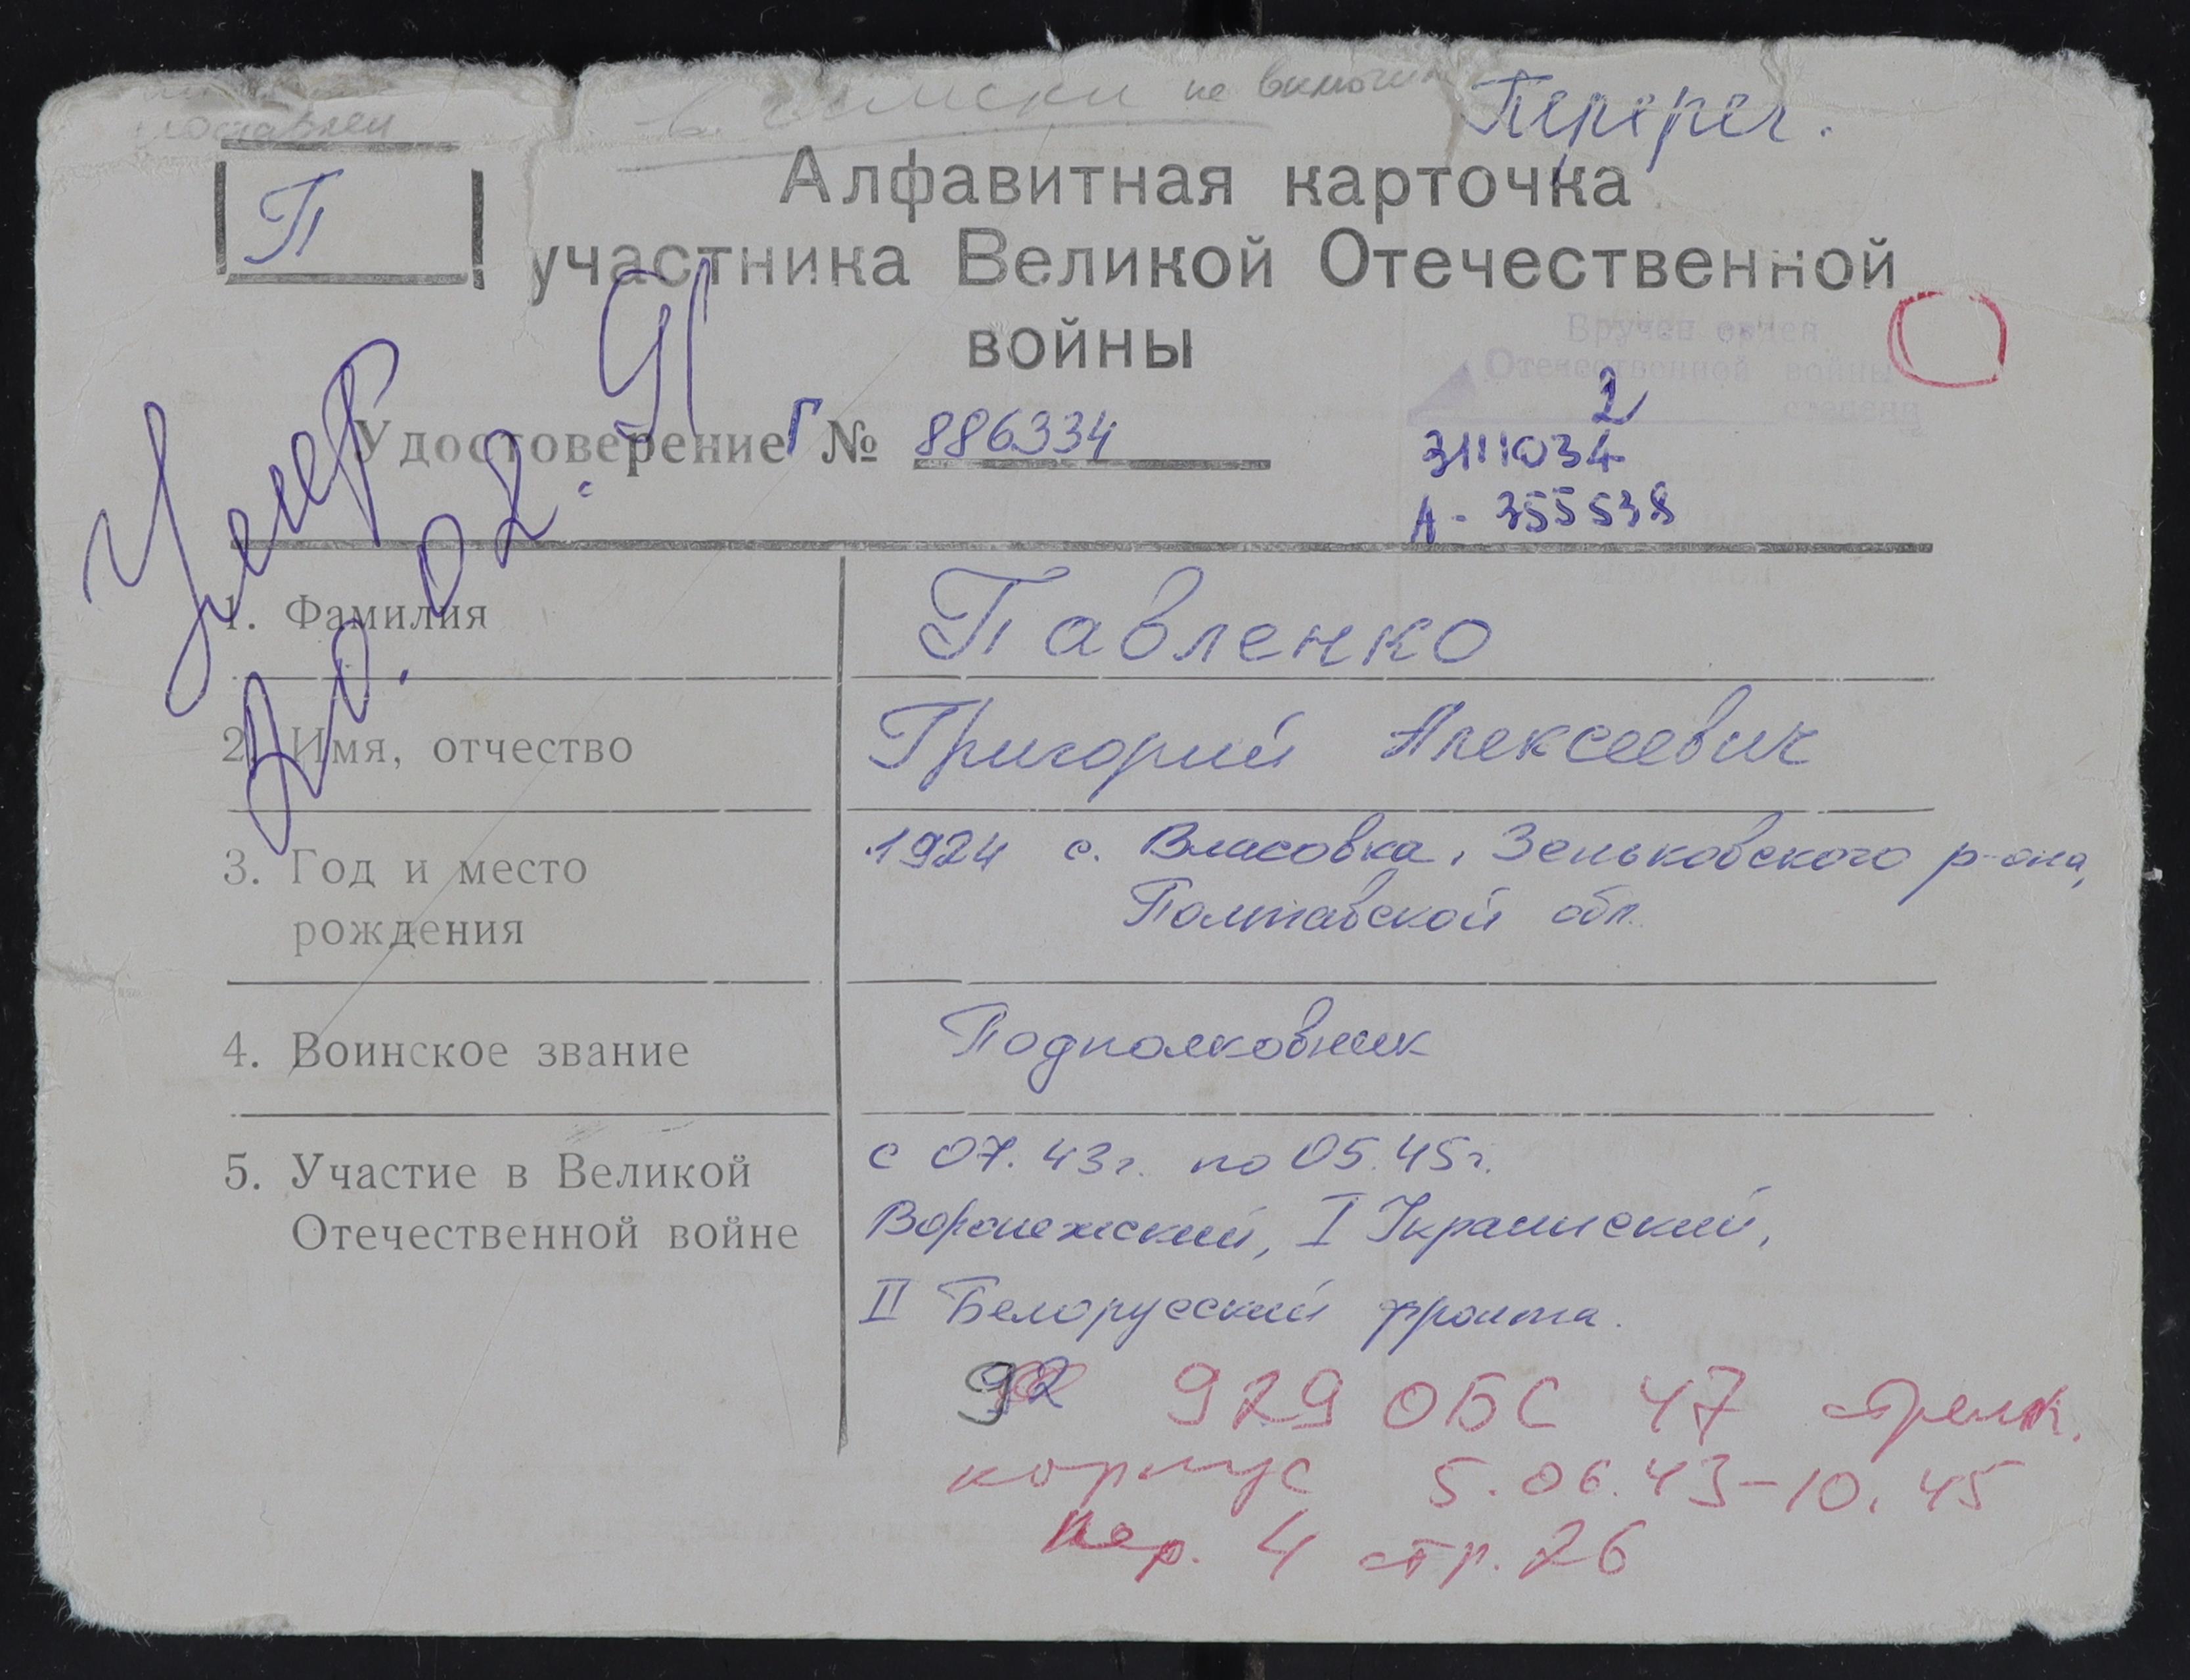 в списки не включен
Перерег.
П
Алфавитная карточка
участника Великой Отечественной
войны
Вручен орден
Отечественной войны
2 степени
Удостоверение Г № 886334
3111034
А - 355538
Умер
20.02.91
1. Фамилия Павленко
2. Имя, отчество Григорий Алексеевич
3. Год и место 1924 с. Власовка, Зеньковского р-она,
рождения Полтавской обл.
4. Воинское звание Подполковник
5. Участие в Великой с 07.43г. по 05.45г.
Отечественной войне Воронежский, I Украинский,
II Белорусский фронта.
92 929 ОБС 47 стрелк.
корпус 5.06.43-10.45
пер. 4 стр. 26